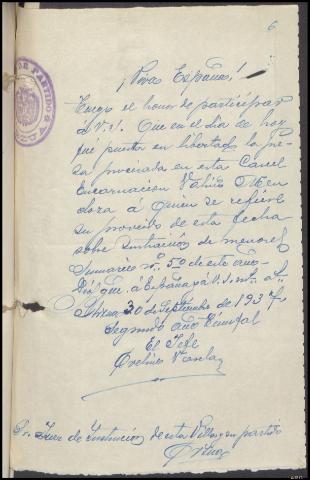 6
¡Viva España!
Tengo el honor de participar
á V.S. Que en el dia de hoy
fue puesta en libertad la pre
sa procesada en esta Carcel
Encarnacion Men
doza á quien se refiere
su proveido de esta fecha
sobre de menores
Sumario nº. 50 de este año
Dios gue. á España y á V.S. m. a.
30 de Septiembre de 1937
Segundo año Triunfal
El Jefe
Avelino Varela
Sr. Juez de Instrucción de esta Villa y su partido